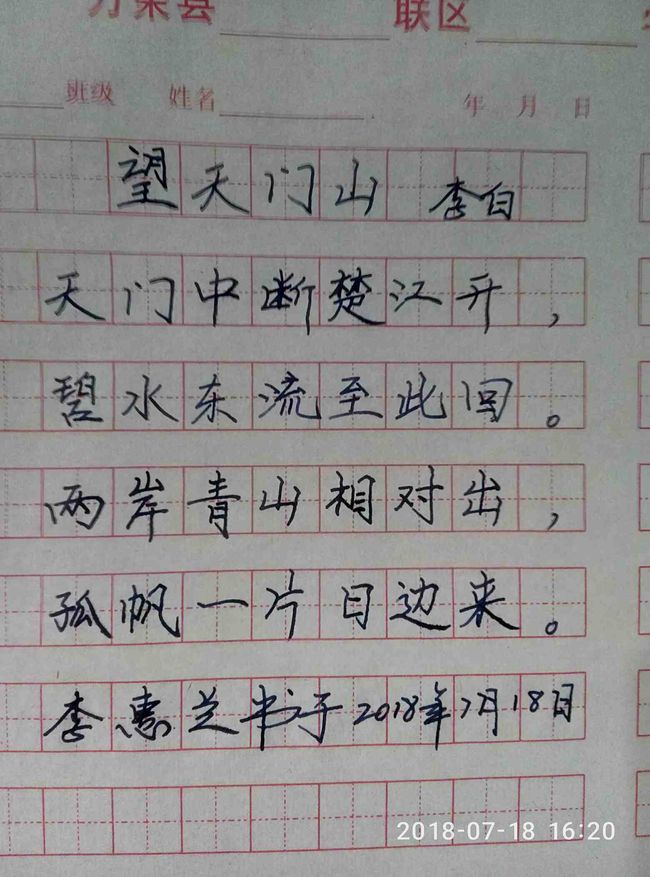 万荣县 联区
班级 姓名 年 月 日
望天门山 李白
天门中断楚江开，
碧水东流至此回。
两岸青山相对出，
孤帆一片日边来。
李惠兰书于2018年7月18日
2018-07-18 16:20